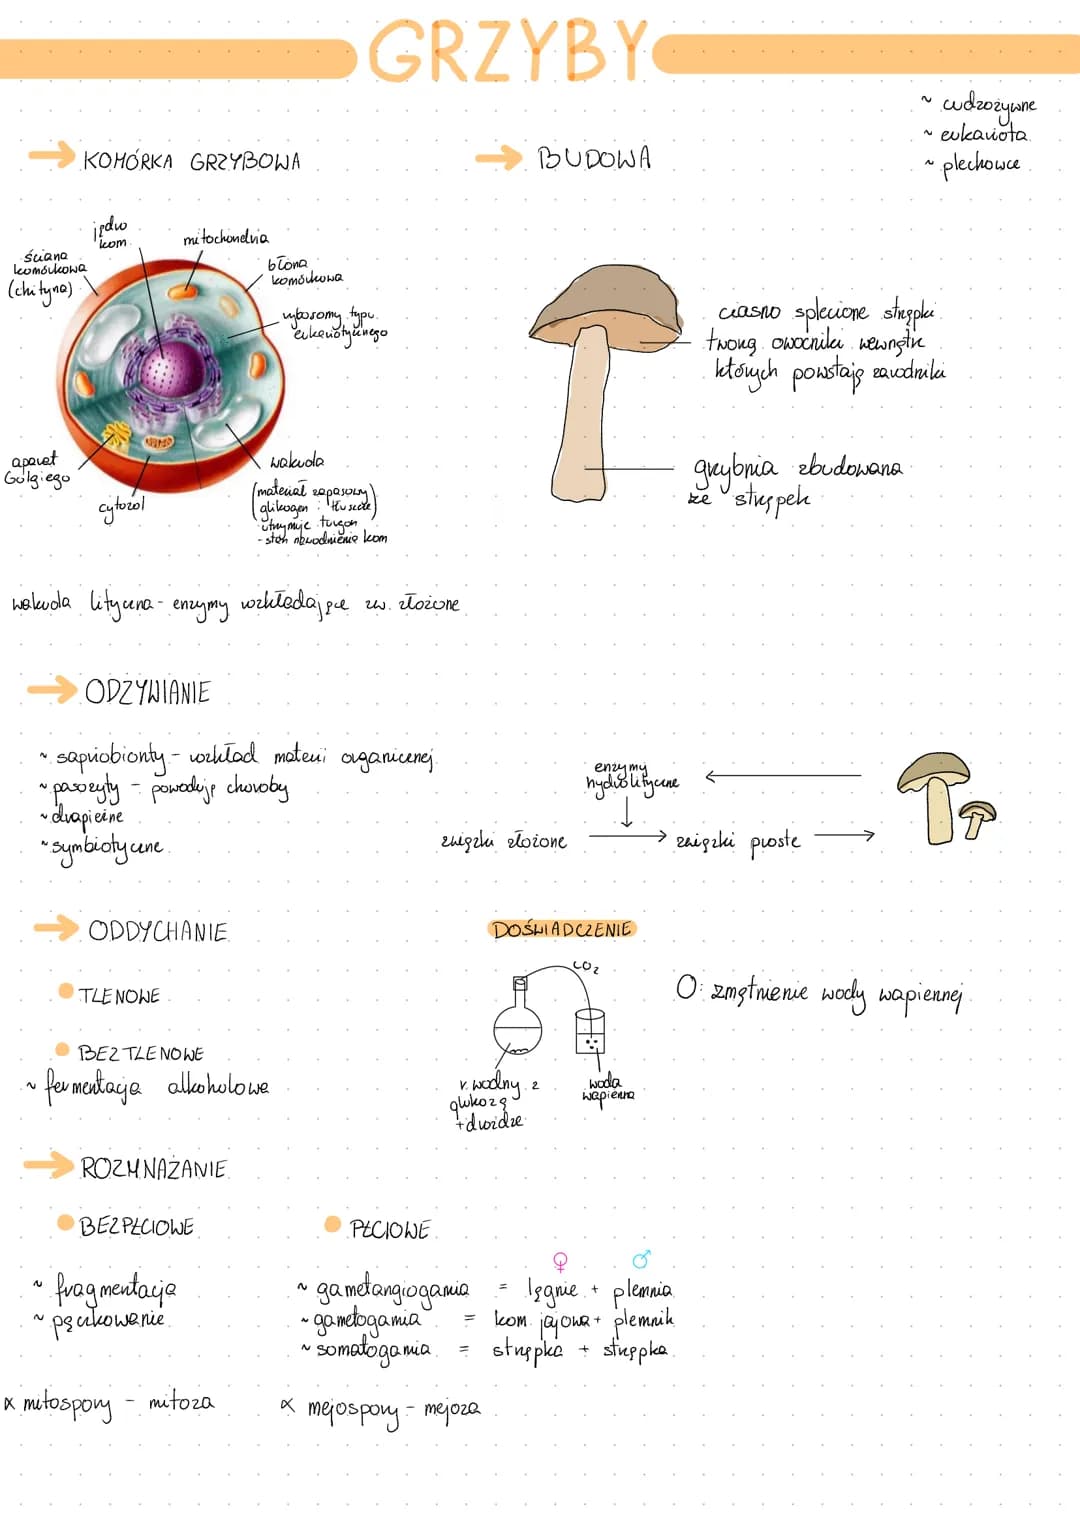 GRZYBY
~ cudzożywne
~ eukariota
~ plechowce
→ KOMÓRKA GRZYBOWA
→ BUDOWA
jądro
kom.
mitochondria
ściana
komórkowa
(chityna)
błona
komórkowa
rybosomy typu
eukariotycznego
aparat
Golgiego
cytozol
wakuola
(materiał zapasowy)
glikogen i tłuszcze
utrzymuje turgor
- stan nawodnienia kom
ciasno splecione strzępki
tworzą owocniki wewnątrz
których powstają zarodniki
grzybnia zbudowana
ze strzępek
wakuola lityczna - enzymy rozkładające zw. złożone
→ ODŻYWIANIE
~ saprobionty - rozkład materii organicznej
~ pasożyty - powodują choroby
~ drapieżne
~ symbiotyczne
enzymy
hydrolityczne
związki złożone → związki proste →
→ ODDYCHANIE
• TLENOWE
• BEZTLENOWE
~ fermentacja alkoholowa
DOŚWIADCZENIE
CO₂
O: zmętnienie wody wapiennej
r. wodny z
glukozą
+ drożdże
woda
wapienna
→ ROZMNAŻANIE
• BEZPŁCIOWE
~ fragmentacja
~ pączkowanie
• PŁCIOWE
♀ ♂
~ gametangiogamia = lęgnie + plemnia
~ gametogamia = kom. jajowa + plemnik
~ somatogamia = strzępka + strzępka
× mitospory - mitoza
× mejospory - mejoza